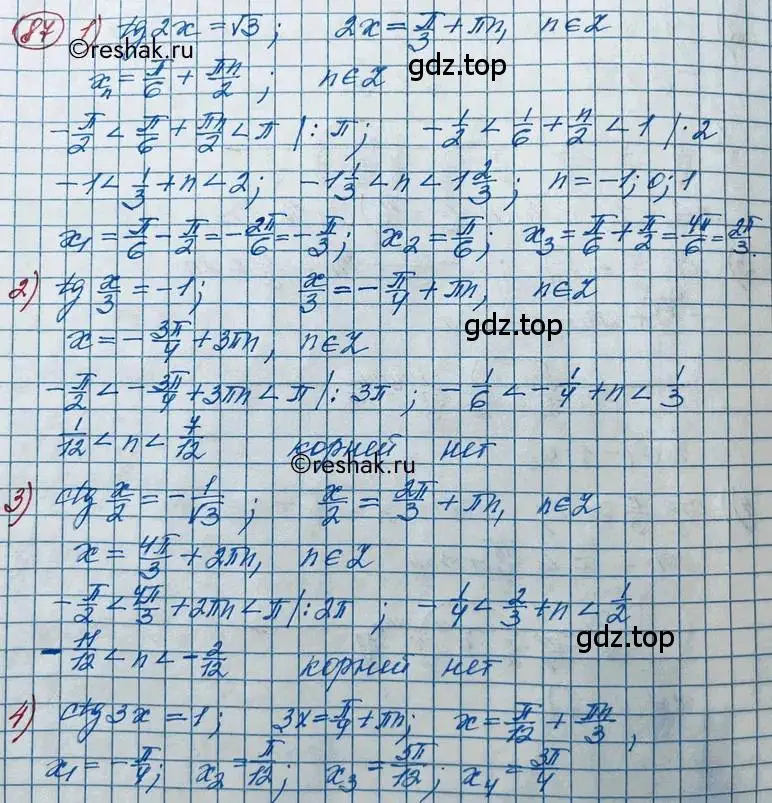 87 1) tg 2x = √3; 2x = π/3 + πn, n∈Z
©reshak.ru
gdz.top
xₙ = π/6 + πn/2; n∈Z
-π/2 < π/6 + πn/2 < π |:π; -1/2 < 1/6 + n/2 < 1 |·2
-1 < 1/3 + n < 2; -1 1/3 < n < 1 2/3; n = -1; 0; 1
x₁ = π/6 - π/2 = -2π/6 = -π/3; x₂ = π/6; x₃ = π/6 + π/2 = 4π/6 = 2π/3.
2) tg x/3 = -1; x/3 = -π/4 + πn, n∈Z
gdz.top
x = -3π/4 + 3πn, n∈Z
-π/2 < -3π/4 + 3πn < π |:3π; -1/6 < -1/4 + n < 1/3
1/12 < n < 7/12 корней нет
©reshak.ru
3) ctg x/2 = -1/√3; x/2 = 2π/3 + πn, n∈Z
x = 4π/3 + 2πn, n∈Z
-π/2 < 4π/3 + 2πn < π |:2π; -1/4 < 2/3 + n < 1/2
-11/12 < n < -2/12 корней нет
4) ctg 3x = 1; 3x = π/4 + πn; x = π/12 + πn/3,
x₁ = -π/4; x₂ = π/12; x₃ = 5π/12; x₄ = 3π/4
©reshak.ru
gdz.top